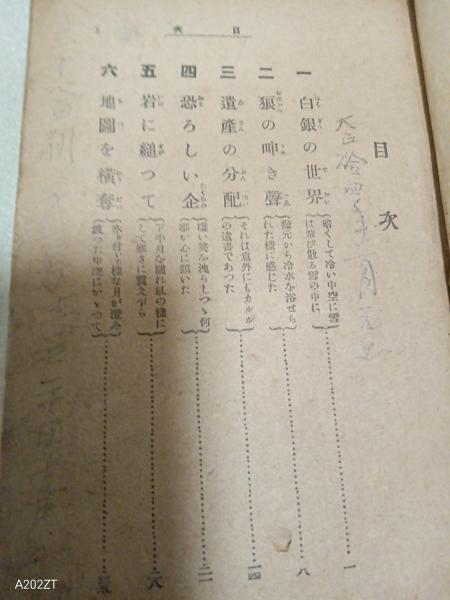 目次
1
目次
大正拾四年一月元旦
一 白銀の世界
暗くして冷い中空に雪
は飛び散る雪の中に
一
二 狼の呻き聲
襟元から冷水を浴せら
れた樣に感じた
八
三 遺産の分配
それは意外にもカルル
の遺書であつた
一四
四 恐ろしい企
凄い笑を洩らしつゝ何
事か心に頷いた
二一
五 岩に縋つて
下半月を濡れ鼠の樣に
して寒さに震え乍ら
二八
六 地圖を橫奪
氷き付いた樣な月が澄み
渡つた中空にかゝつて